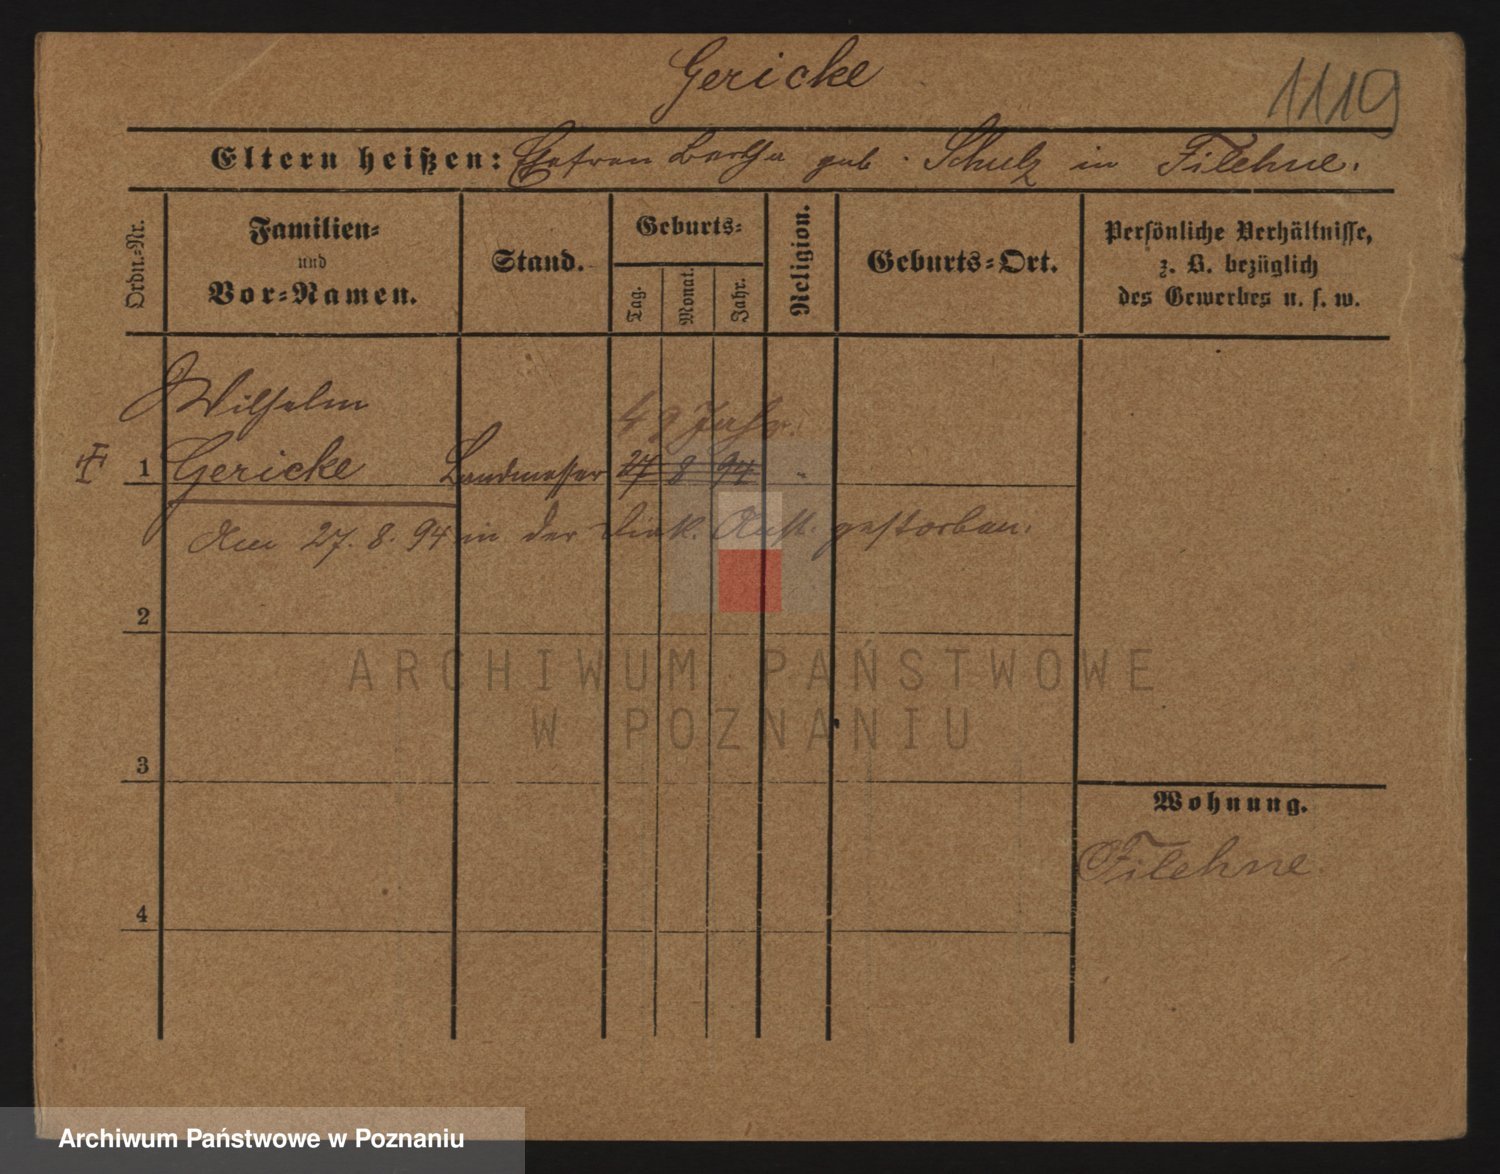 Gericke
1119
Eltern heißen: Ehefrau Bertha geb. Schulz in Filehne.
Ordn.-Nr.
Familien- und Vor-Namen.
Stand.
Geburts-
Tag.
Monat.
Jahr.
Religion.
Geburts-Ort.
Persönliche Verhältnisse,
z. B. bezüglich
des Gewerbes u. s. w.
Wilhelm
49 Jahr.
1 Gericke Landmesser 27 8 94
Am 27. 8. 94 in der Diak. Anst. gestorben.
2
ARCHIWUM PAŃSTWOWE
W POZNANIU
3
Wohnung.
Filehne
4
Archiwum Państwowe w Poznaniu